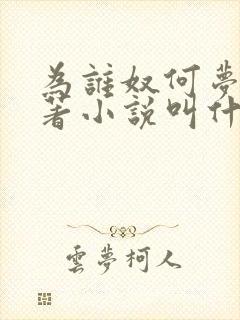 為誰奴何夢
著小說叫什
雲夢柯人